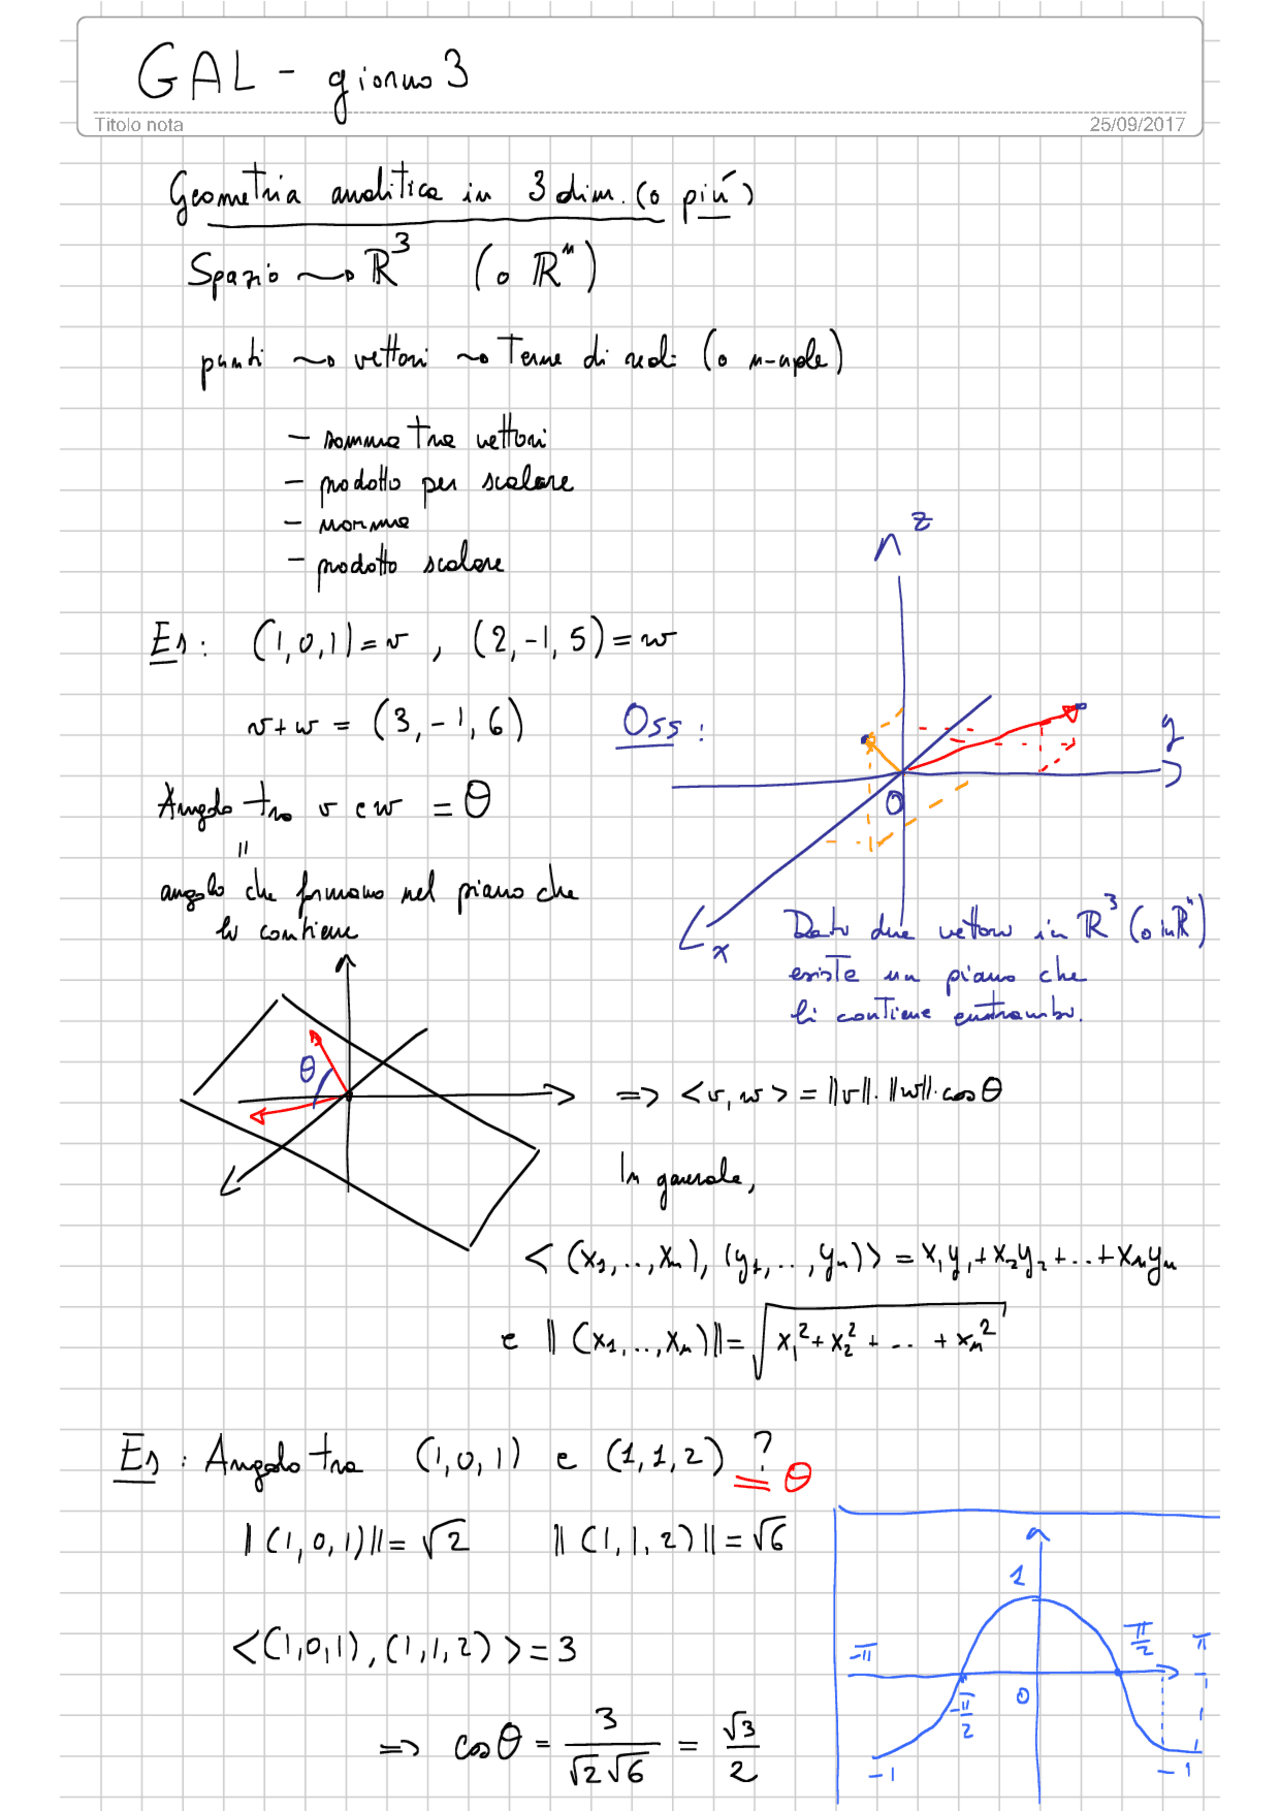 GAL - giorno 3
Titolo nota
25/09/2017
Geometria analitica in 3 dim. (o più)
Spazio ⇝ ℝ³ (o ℝⁿ)
punti ⇝ vettori ⇝ Terne di reali (o n-uple)
- somma tra vettori
- prodotto per scalare
- norma
- prodotto scalare
Es: (1,0,1)=v , (2,-1,5)=w
v+w = (3,-1,6)
Oss:
z
y
x
O
Angolo tra v e w = θ
"
angolo che formano nel piano che
li contiene
Dati due vettori in ℝ³ (o in ℝⁿ)
esiste un piano che
li contiene entrambi.
θ
=> <v,w> = ||v||·||w||·cosθ
In generale,
<(x₁,..,xₙ),(y₁,..,yₙ)> = x₁y₁+x₂y₂+..+xₙyₙ
e ||(x₁,..,xₙ)|| = √(x₁²+x₂²+..+xₙ²)
Es: Angolo tra (1,0,1) e (1,1,2)? = θ
||(1,0,1)|| = √2 ||(1,1,2)|| = √6
<(1,0,1),(1,1,2)> = 3
=> cosθ = 3/(√2√6) = √3/2
1
-π
-π/2
0
π/2
π
-1
-1